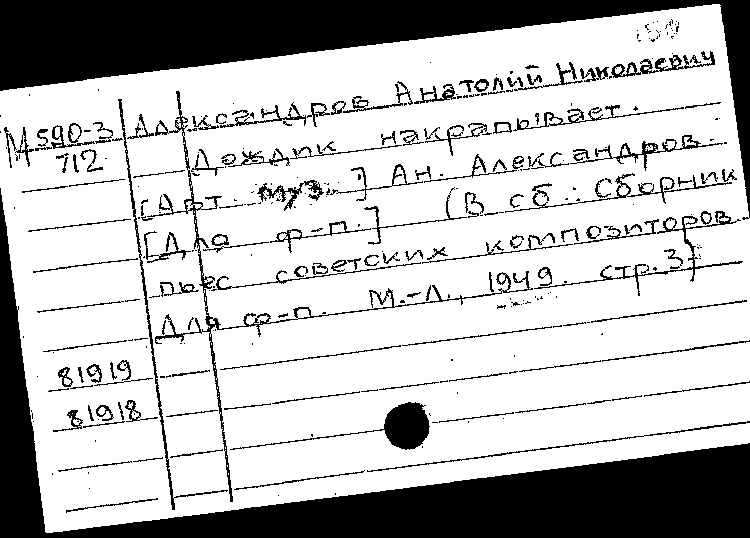 150
М 590-3 Александров Анатолий Николаевич
712 Дождик накрапывает.
[Авт. муз.] Ан. Александров.
[Для ф-п.] (В сб.: Сборник
пьес советских композиторов.
Для ф-п. М.-Л., 1949. стр. 3)
81919
81918